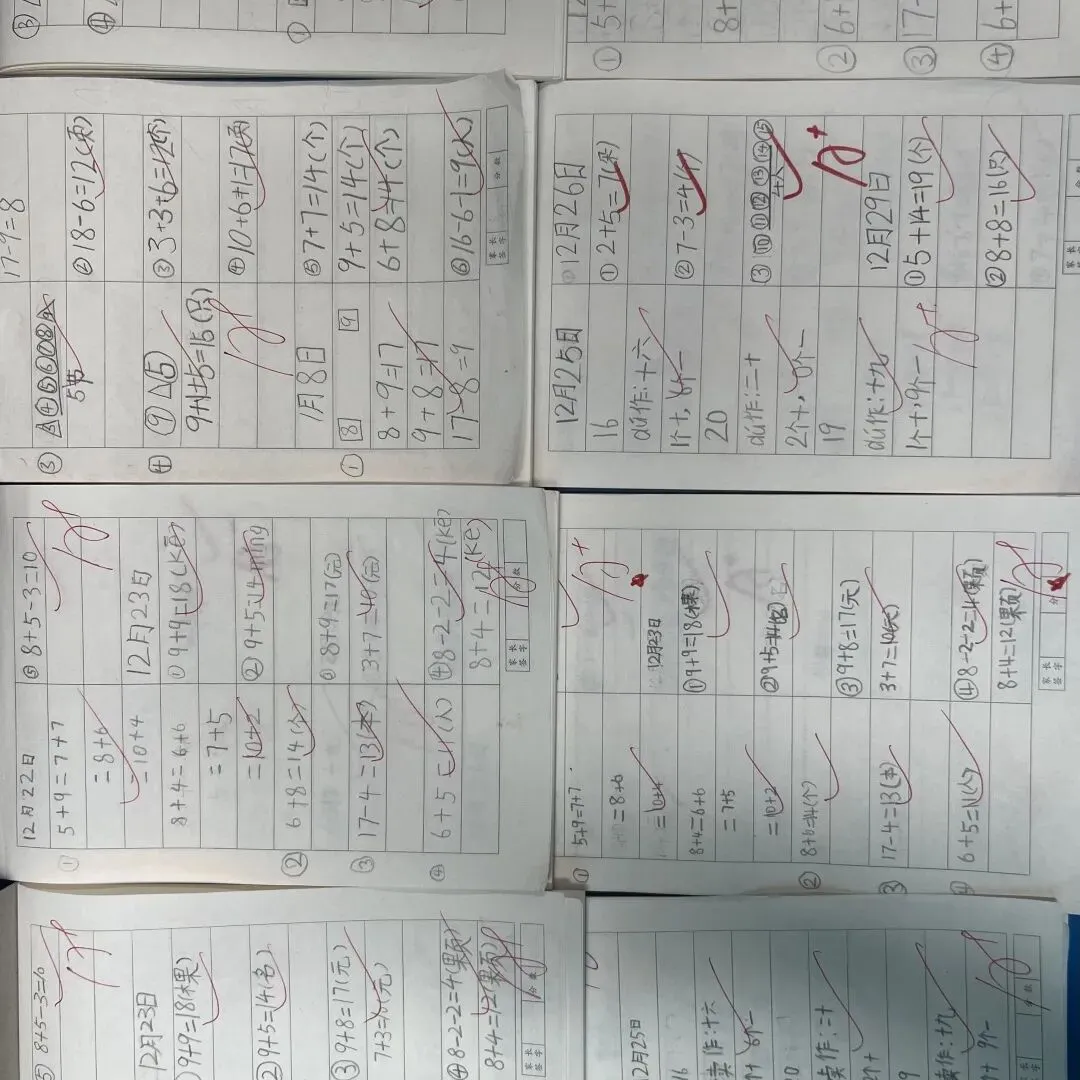 17-9=8
③
5节
④
9+1+5=15(只)
1月8日
①
8
9
8+9=17
9+8=17
17-8=9
②18-6=12(页)
③3+3+6=12(个)
④10+6+1=17(页)
⑤7+7=14(个)
9+5=14(个)
6+8=14(个)
⑥16-6-1=9(人)
家长签字
分数
12月25日
16
dú作:十六
1个十,6个一
20
dú作:二十
2个十,0个一
19
dú作:十九
1个十,9个一
12月26日
①2+5=7(朵)
②7-3=4(个)
③
4人
A+
12月29日
①5+14=19(个)
②8+8=16(只)
12月22日
①
5+9=7+7
=8+6
=10+4
8+4=6+6
=7+5
=10+2
②
6+8=14(个)
③
17-4=13(本)
④
6+5=11(人)
⑤8+5-3=10
12月23日
①9+9=18(kē)
②9+5=14míng
③8+9=17(元)
3+7=10(元)
④8-2-2=4(kē)
8+4=12(kē)
家长签字
分数
①
5+9=7+7
=8+6
=10+4
8+4=6+6
=7+5
=10+2
②
8+6=14(个)
③
17-4=13(本)
④
6+5=11(人)
12月23日
①9+9=18(棵)
②9+5=14(名)
③9+8=17(元)
3+7=10(元)
④8-2-2=4(颗)
8+4=12(颗)
家长签字
⑤8+5-3=10
12月23日
9+9=18(棵)
②9+5=14(名)
③9+8=17(元)
7+3=10(元)
④8-2-2=4(颗)
8+4=12(颗)
分数
12月25日
16
作:十六
6个一
作:二十
作:十九
9个一
分数